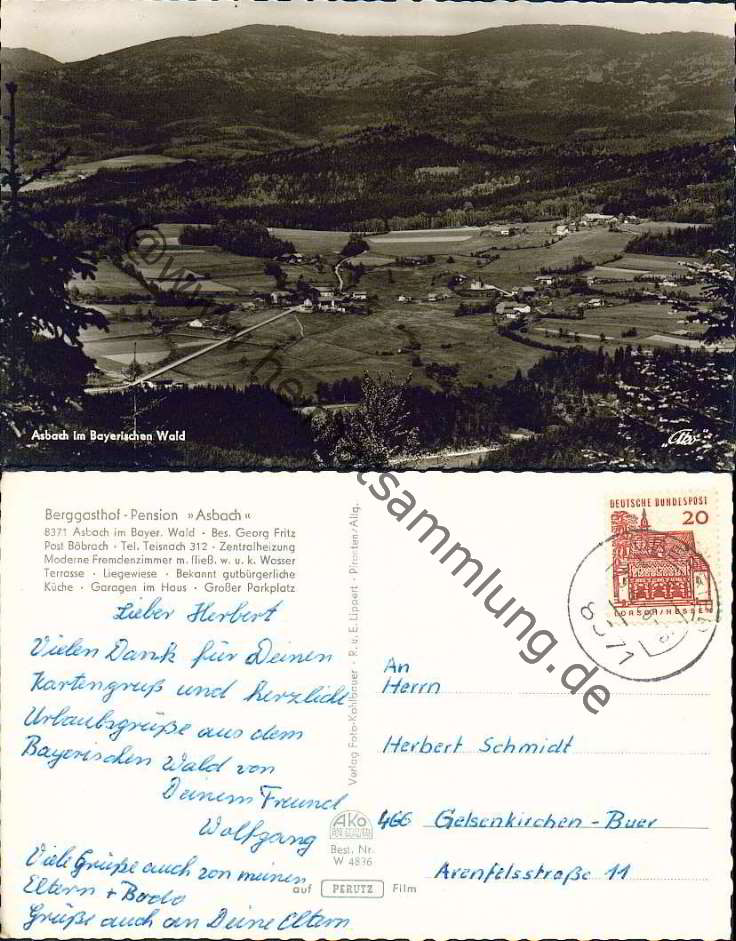 Asbach im Bayerischen Wald
Ako
Berggasthof - Pension »Asbach«
8371 Asbach im Bayer. Wald · Bes. Georg Fritz
Post Böbrach · Tel. Teisnach 312 · Zentralheizung
Moderne Fremdenzimmer m. fließ. w. u. k. Wasser
Terrasse · Liegewiese · Bekannt gutbürgerliche
Küche · Garagen im Haus · Großer Parkplatz
Lieber Herbert
Vielen Dank für Deinen
Kartengruß und herzliche
Urlaubsgrüße aus dem
Bayerischen Wald von
Deinem Freund
Wolfgang
Viele Grüße auch von meinen
Eltern + Bodo
Grüße auch an Deine Eltern
Verlag Foto-Kohlbauer · R. u. E. Lippert · Pfronten/Allg.
AKO
Best. Nr.
W 4836
auf PERUTZ Film
DEUTSCHE BUNDESPOST
20
LORSCH/HESSEN
8371
An
Herrn
Herbert Schmidt
466 Gelsenkirchen-Buer
Arenfelsstraße 11
heimatsammlung.de